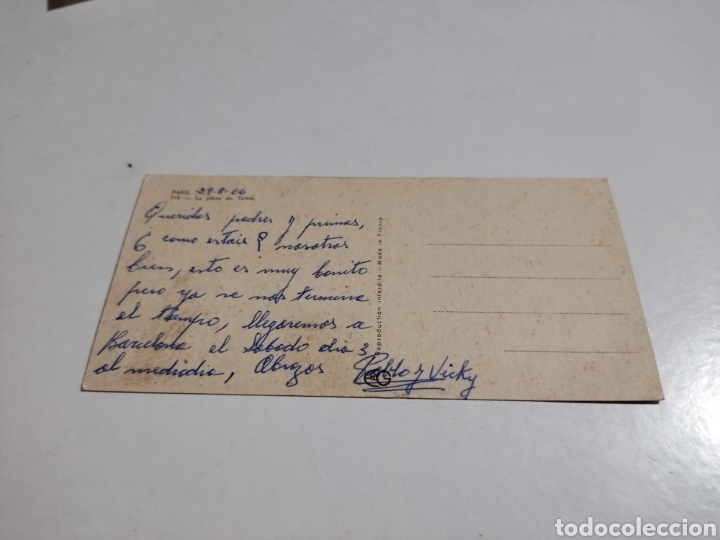 PARIS 29-8-66
La place du Tertre
Queridos padres y primas,
¿ como estais ? nosotros
bien, esto es muy bonito
pero ya se nos termina
el tiempo, llegaremos a
Barcelona el Sábado dia 3
al mediodia, Abrazos Pablo y Vicky
Reproduction interdite - Made in France
todocoleccion